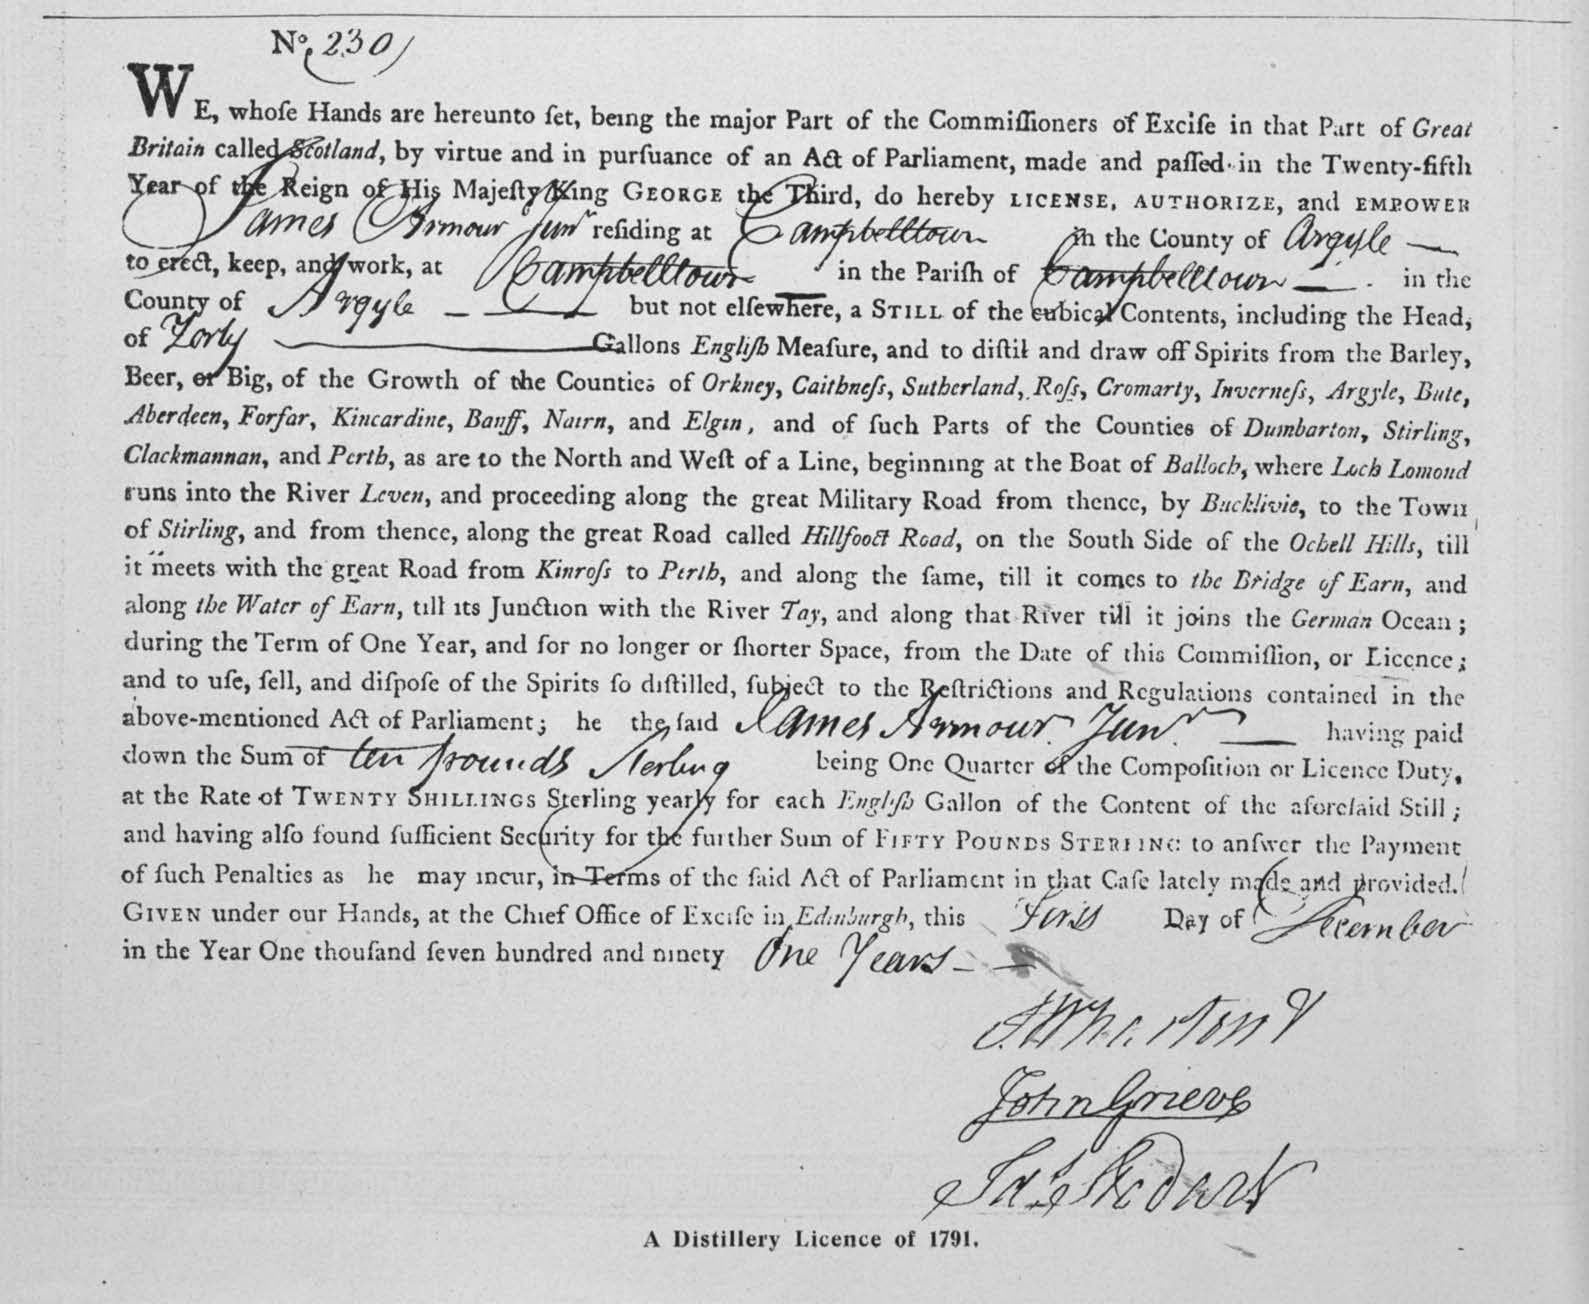 No. 230
WE, whoſe Hands are hereunto ſet, being the major Part of the Commiſſioners of Exciſe in that Part of Great
Britain called Scotland, by virtue and in purſuance of an Act of Parliament, made and paſſed in the Twenty-fifth
Year of the Reign of His Majeſty King GEORGE the Third, do hereby LICENSE, AUTHORIZE, and EMPOWER
James Armour Junr reſiding at Campbelltown in the County of Argyle —
to erect, keep, and work, at Campbelltown in the Pariſh of Campbelltown — in the
County of Argyle — — but not elſewhere, a STILL of the cubical Contents, including the Head,
of Forty — Gallons Engliſh Meaſure, and to diſtil and draw off Spirits from the Barley,
Beer, or Big, of the Growth of the Counties of Orkney, Caithneſs, Sutherland, Roſs, Cromarty, Inverneſs, Argyle, Bute,
Aberdeen, Forfar, Kincardine, Banff, Nairn, and Elgin, and of ſuch Parts of the Counties of Dumbarton, Stirling,
Clackmannan, and Perth, as are to the North and Weſt of a Line, beginning at the Boat of Balloch, where Loch Lomond
runs into the River Leven, and proceeding along the great Military Road from thence, by Bucklivie, to the Town
of Stirling, and from thence, along the great Road called Hillfoot Road, on the South Side of the Ochell Hills, till
it meets with the great Road from Kinroſs to Perth, and along the ſame, till it comes to the Bridge of Earn, and
along the Water of Earn, till its Junction with the River Tay, and along that River till it joins the German Ocean;
during the Term of One Year, and for no longer or ſhorter Space, from the Date of this Commiſſion, or Licence;
and to uſe, ſell, and diſpoſe of the Spirits ſo diſtilled, ſubject to the Reſtrictions and Regulations contained in the
above-mentioned Act of Parliament; he the ſaid James Armour Junr — having paid
down the Sum of ten pounds Sterling being One Quarter of the Compoſition or Licence Duty,
at the Rate of TWENTY SHILLINGS Sterling yearly for each Engliſh Gallon of the Content of the aforeſaid Still;
and having alſo found ſufficient Security for the further Sum of FIFTY POUNDS STERLING to anſwer the Payment
of ſuch Penalties as he may incur, in Terms of the ſaid Act of Parliament in that Caſe lately made and provided.
GIVEN under our Hands, at the Chief Office of Exciſe in Edinburgh, this First Day of December
in the Year One thouſand ſeven hundred and ninety One Years — —
J Wharton
John Grieve
Jas Stodart
A Distillery Licence of 1791.